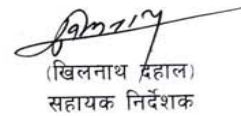 (खिलनाथ दहाल)
सहायक निर्देशक